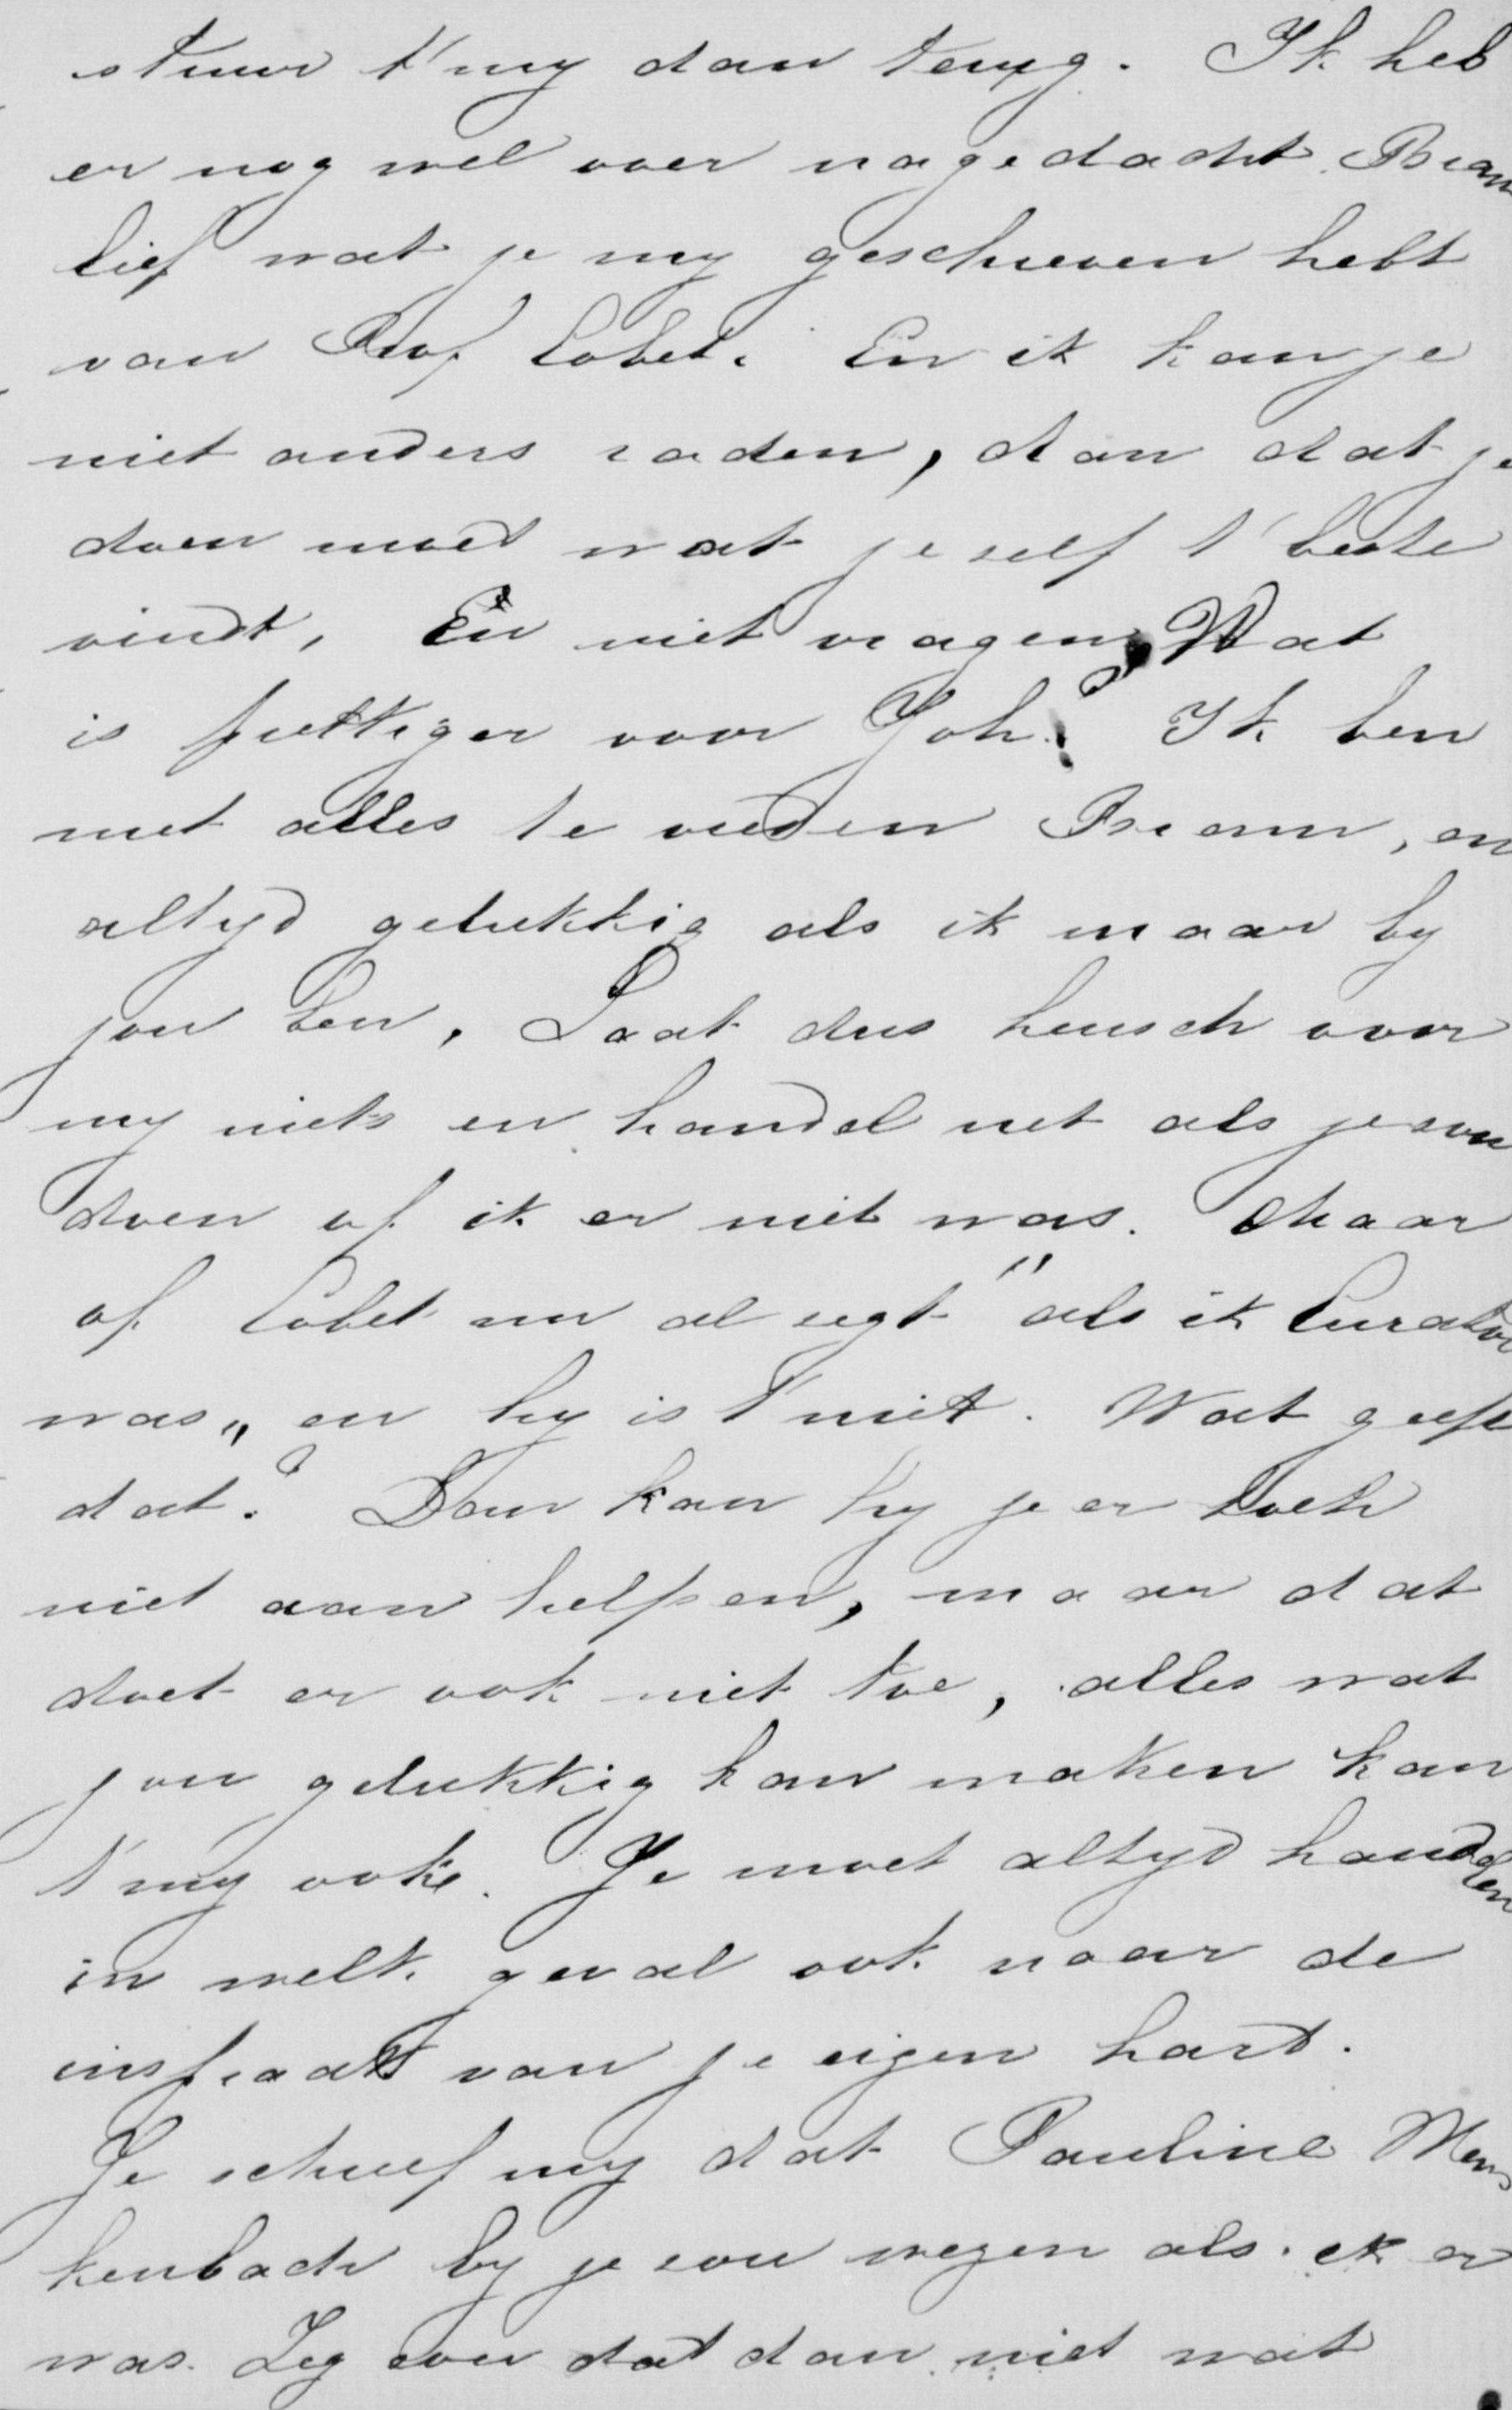 stuur t' my dan terug. Ik heb
er nog wel over nagedacht Bram
lief wat je my geschreven hebt
van Prof Cobet. En ik kan je
niet anders raden, dan dat je
doen moet wat je zelf t' beste
vindt, En niet vragen, Wat
is prettiger voor Joh.? Ik ben
met alles te vreden Bram, en
altyd gelukkig als ik maar by
jou ben. Laat dus heusch voor
my niets en handel net als je zou
doen of ik er niet was. Maar
of Cobet nu al zegt "als ik Curator
was" en hy is t' niet. Wat geeft
dat? Dan kan hy je er toch
niet aan helpen, maar dat
doet er ook niet toe, alles wat
jou gelukkig kan maken kan
t' my ook. Je moet altyd handelen
in welk geval ook naar de
inspraak van je eigen hart.
Je schreef my dat Pauline Mens
kenbach by je zou wezen als ik er
was. Zeg zou dat dan niet wat